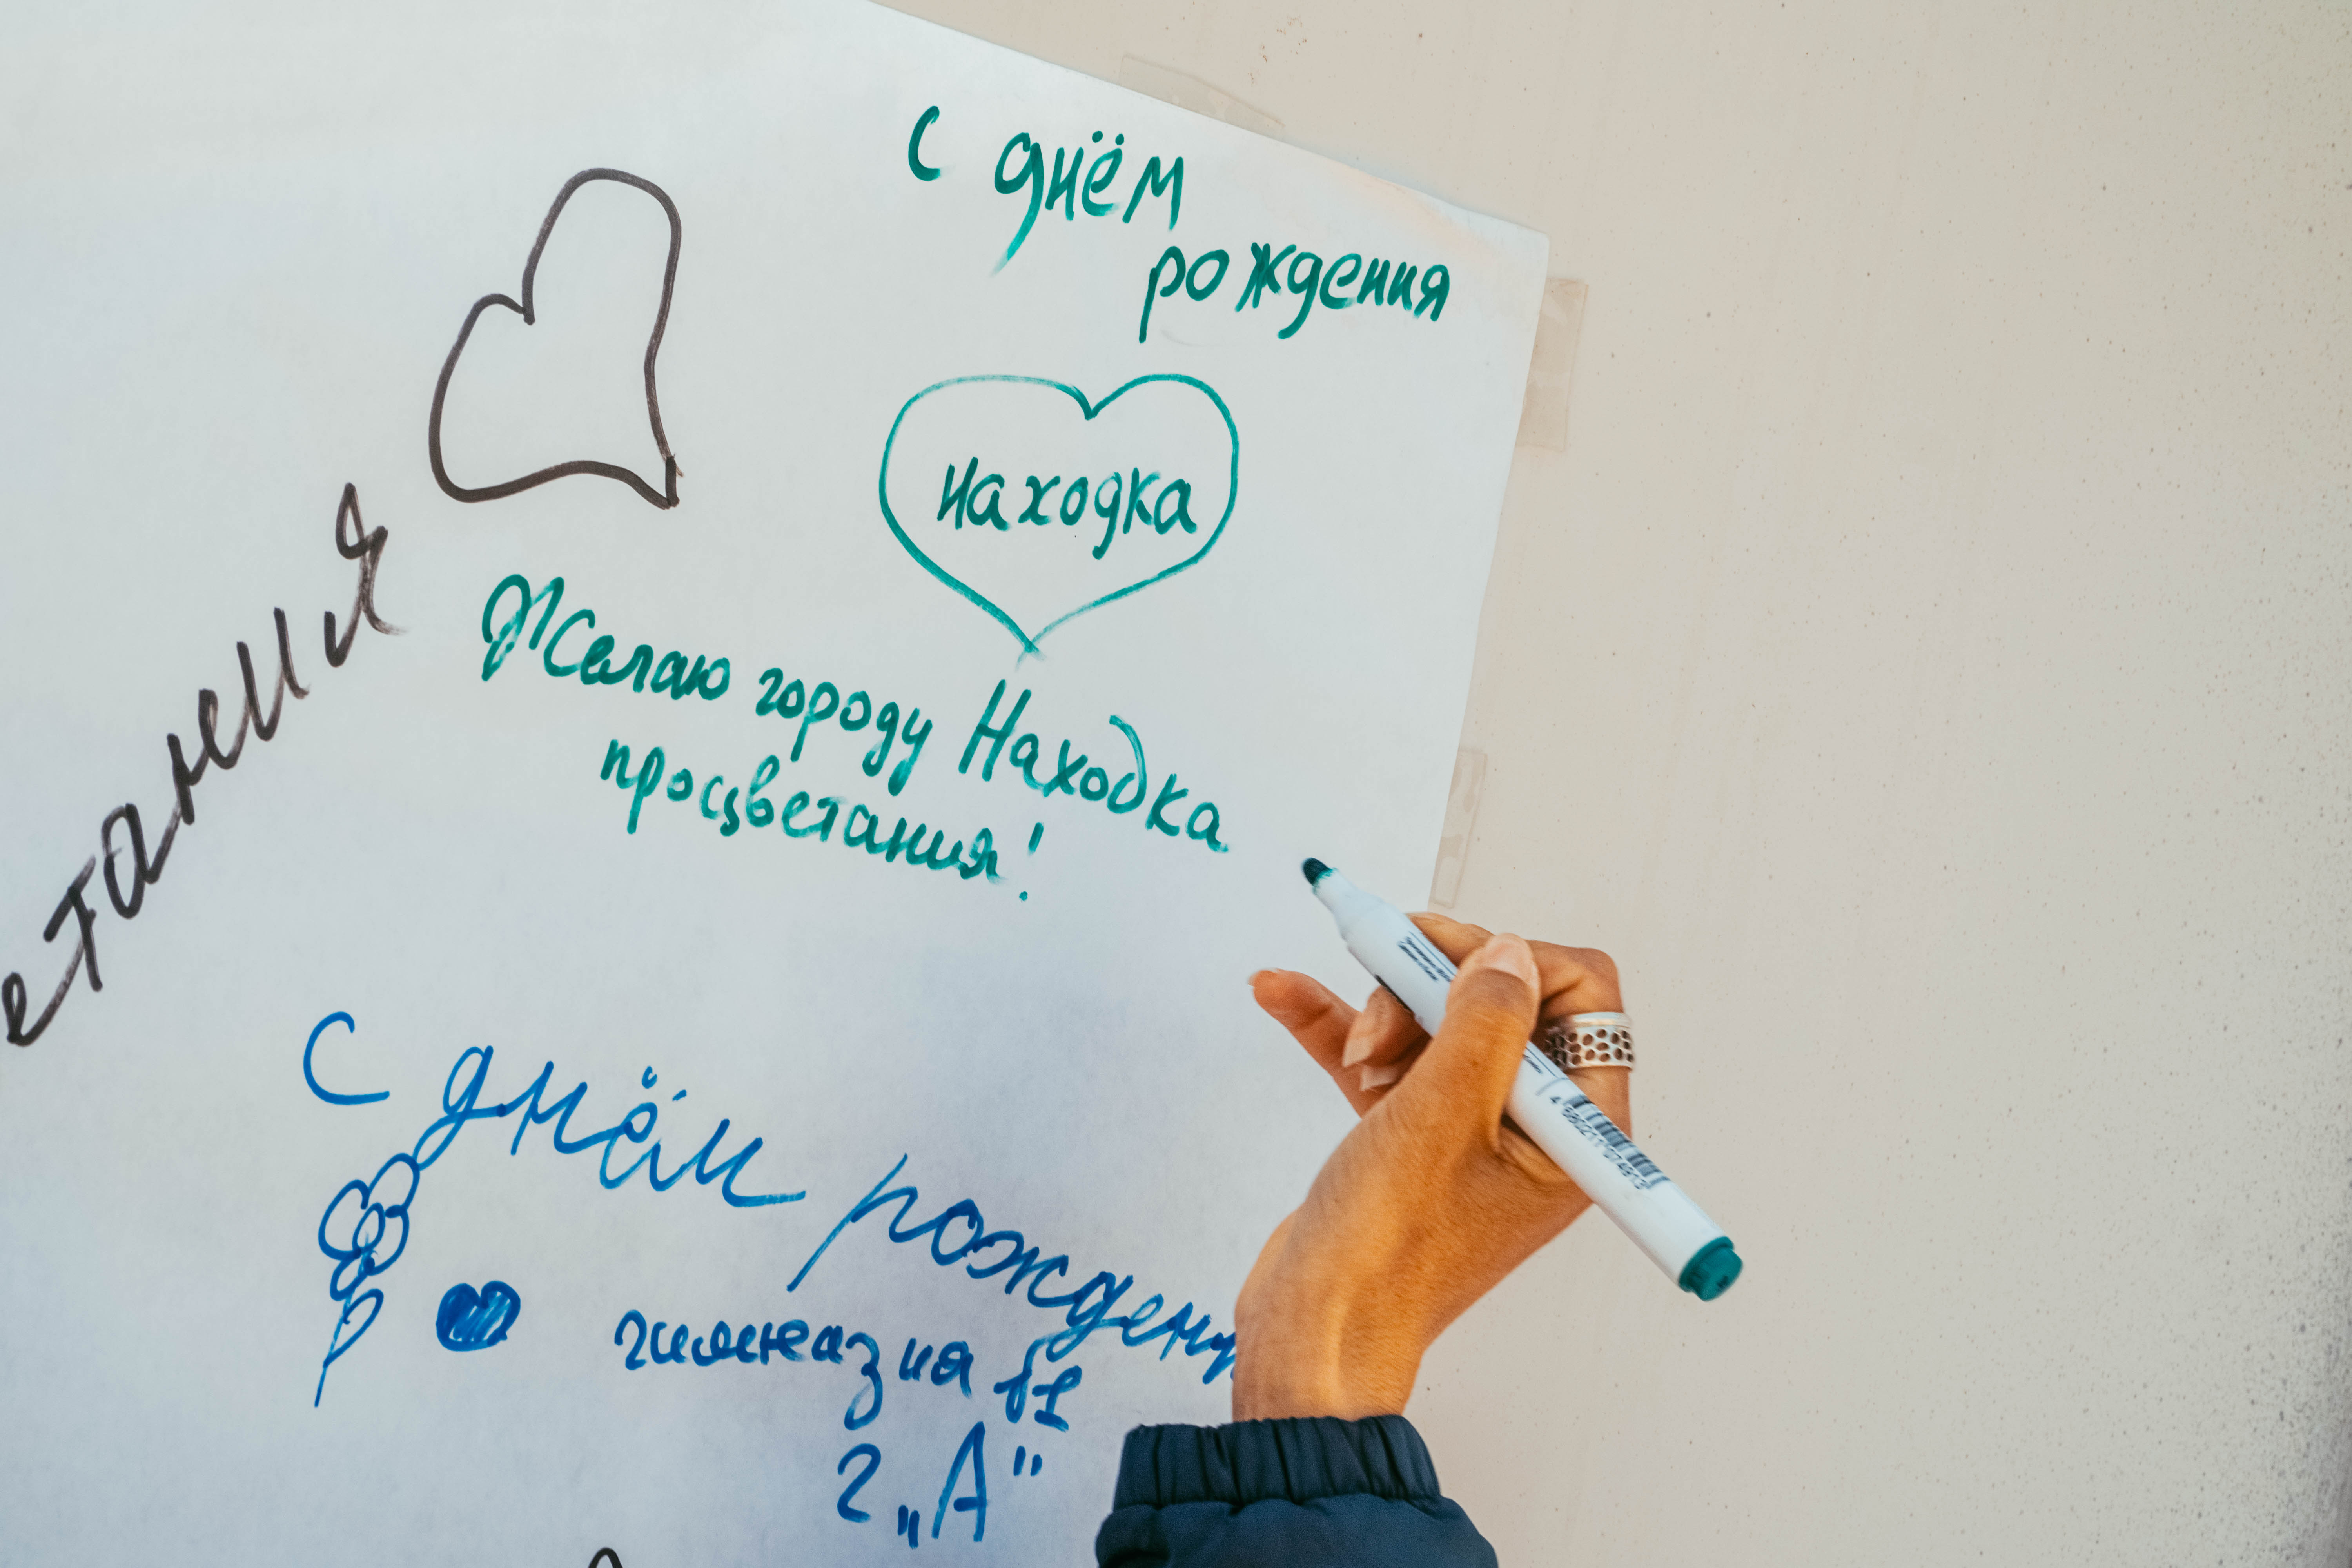 С днём
рождения
Находка
Желаю городу Находка
просцветания!
етания
С днём рождени
гимназия №1
2 „А"